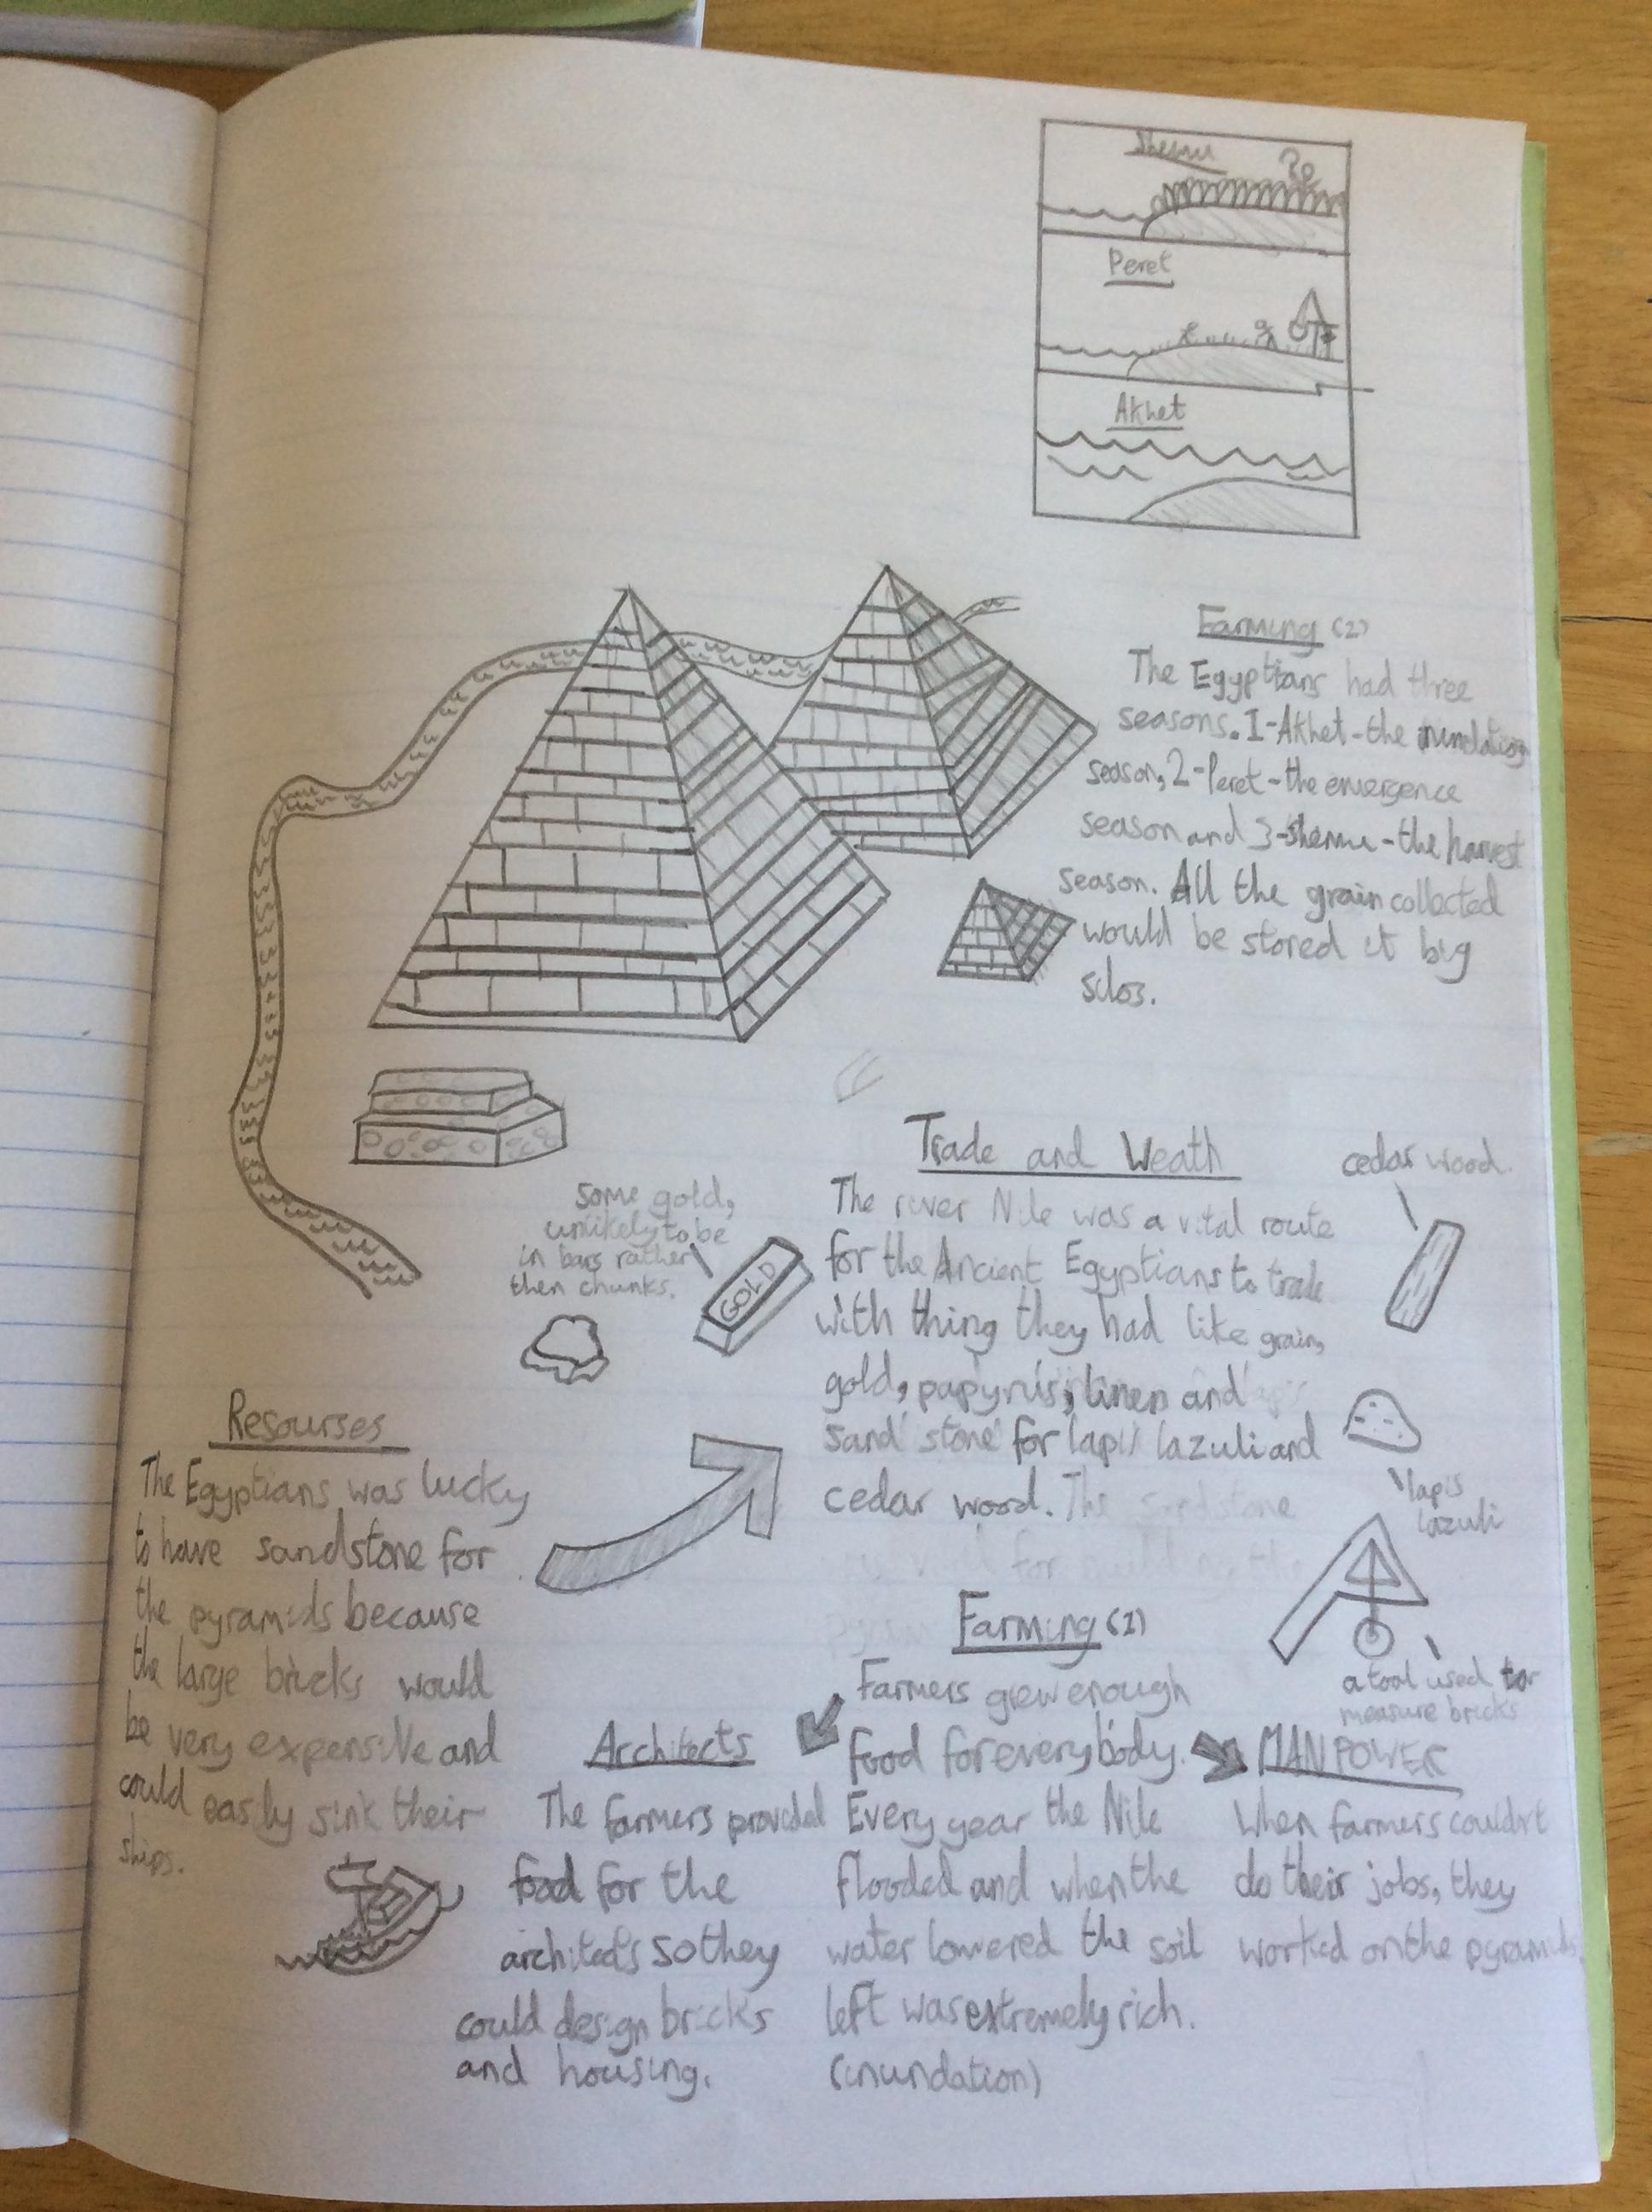 Shemu
Peret
Akhet
Farming (2)
The Egyptians had three
seasons. 1-Akhet-the inundation
season, 2-Peret-the emergence
season and 3-shemu-the harvest
season. All the grain collected
would be stored it big
silos.
Trade and Weath
The river Nile was a vital route
for the Ancient Egyptians to trade
with thing they had like grain,
gold, papyrus, linen and
sand stone for lapis lazuli and
cedar wood. The sandstone
for building the
cedar wood.
some gold,
unlikely to be
in bars rather
then chunks.
GOLD
lapis
lazuli
a tool used for
measure bricks
Resourses
The Egyptians was lucky
to have sandstone for
the pyramids because
the large bricks would
be very expensive and
could easily sink their
ships.
Farming (1)
Farmers grew enough
food for everybody.
Every year the Nile
flooded and when the
water lowered the soil
left was extremely rich.
(inundation)
Architects
The farmers provided
food for the
architects so they
could design bricks
and housing.
MANPOWER
When farmers couldn't
do their jobs, they
worked on the pyramids.